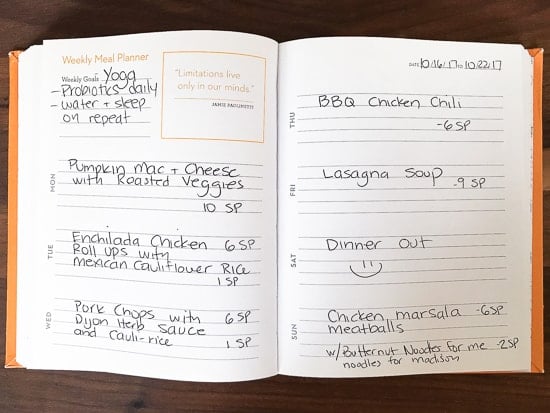 Weekly Meal Planner
Weekly Goals: Yoga
- Probiotics daily
- water + sleep
on repeat
"Limitations live
only in our minds."
JAMIE PAOLINETTI
MON
Pumpkin Mac + Cheese
with Roasted Veggies
10 SP
TUE
Enchilada Chicken 6 SP
Roll ups with
Mexican Cauliflower Rice
1 SP
WED
Pork Chops with 6 SP
Dijon Herb Sauce
and Cauli-rice 1 SP
DATE 10/16/17 TO 10/22/17
THU
BBQ Chicken Chili
-6 SP
FRI
Lasagna Soup -9 SP
SAT
Dinner Out
SUN
Chicken marsala -6SP
meatballs
w/ Butternut Noodles for me -2SP
noodles for madison